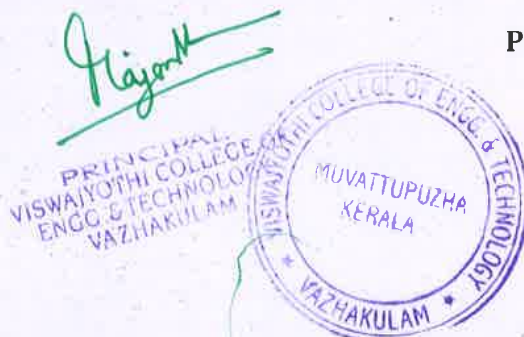 P
PRINCIPAL
VISWAJYOTHI COLLEGE OF
ENGG. & TECHNOLOGY
VAZHAKULAM
VISWAJYOTHI COLLEGE OF ENGG. & TECHNOLOGY
MUVATTUPUZHA
KERALA
* VAZHAKULAM *